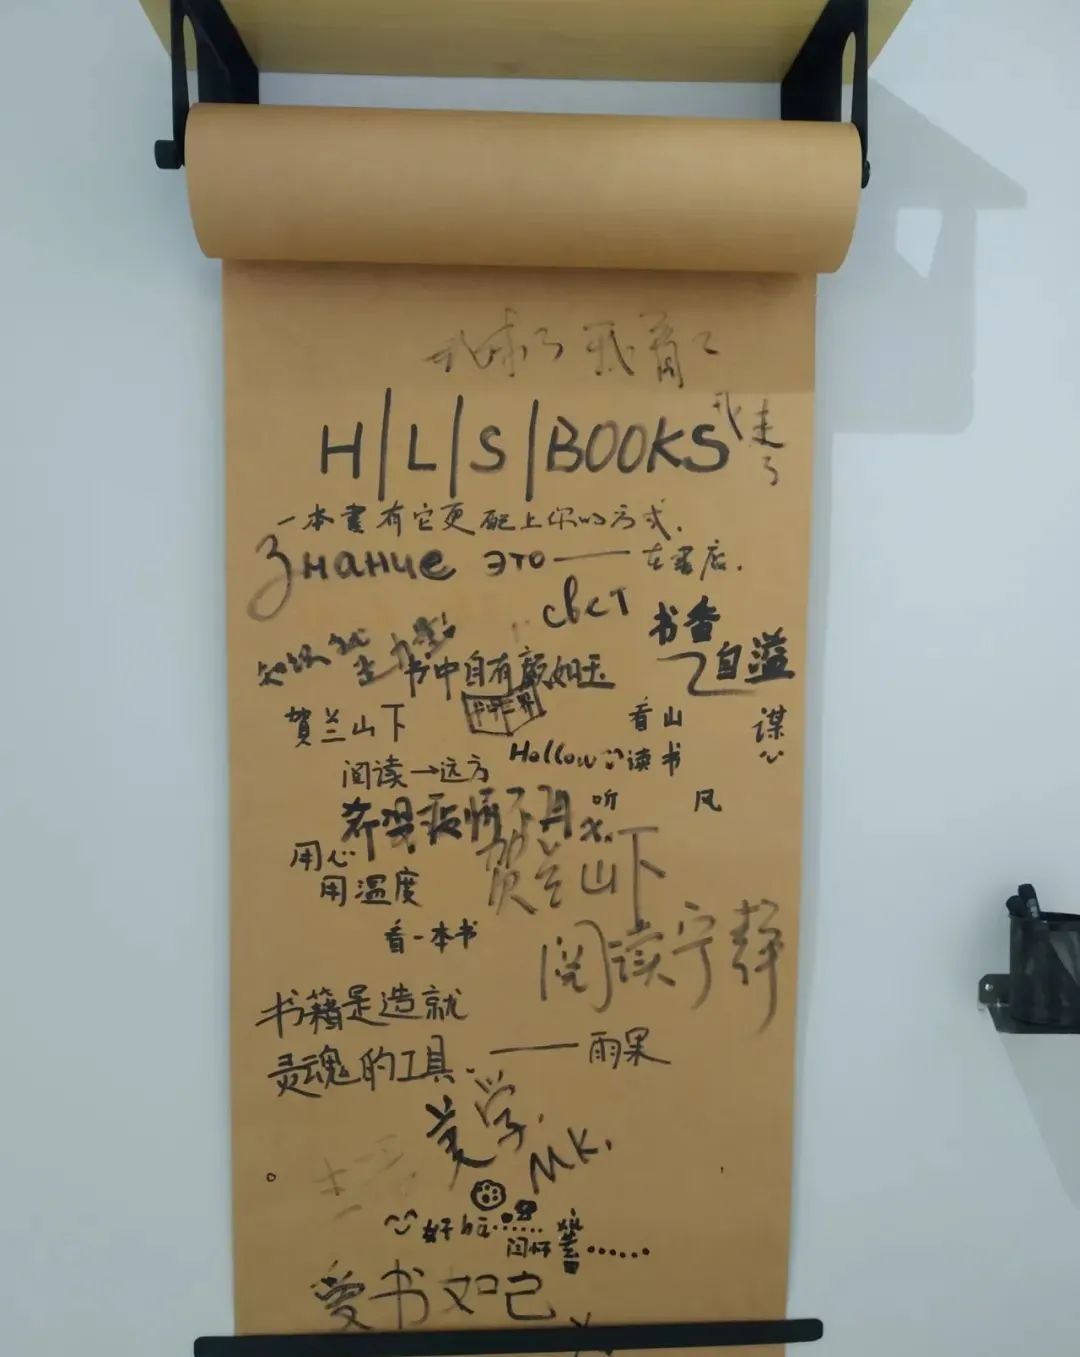 我来了 我看了
我走了
H|L|S|BOOKS
一本書有它更配上你的方式.
Знание это —— 在書店.
свет
书香
自溢
知识就是力量
书中自有颜如玉
書中世界
賀兰山下
看山
谋
Hellow 读书
阅读→远方
听 风
希望疫情不再
用心
贺兰山下
用温度
看一本书
阅读宁静
书籍是造就
灵魂的工具. —— 雨果
美学.
MK.
好hī......
闫怀
爱书如己